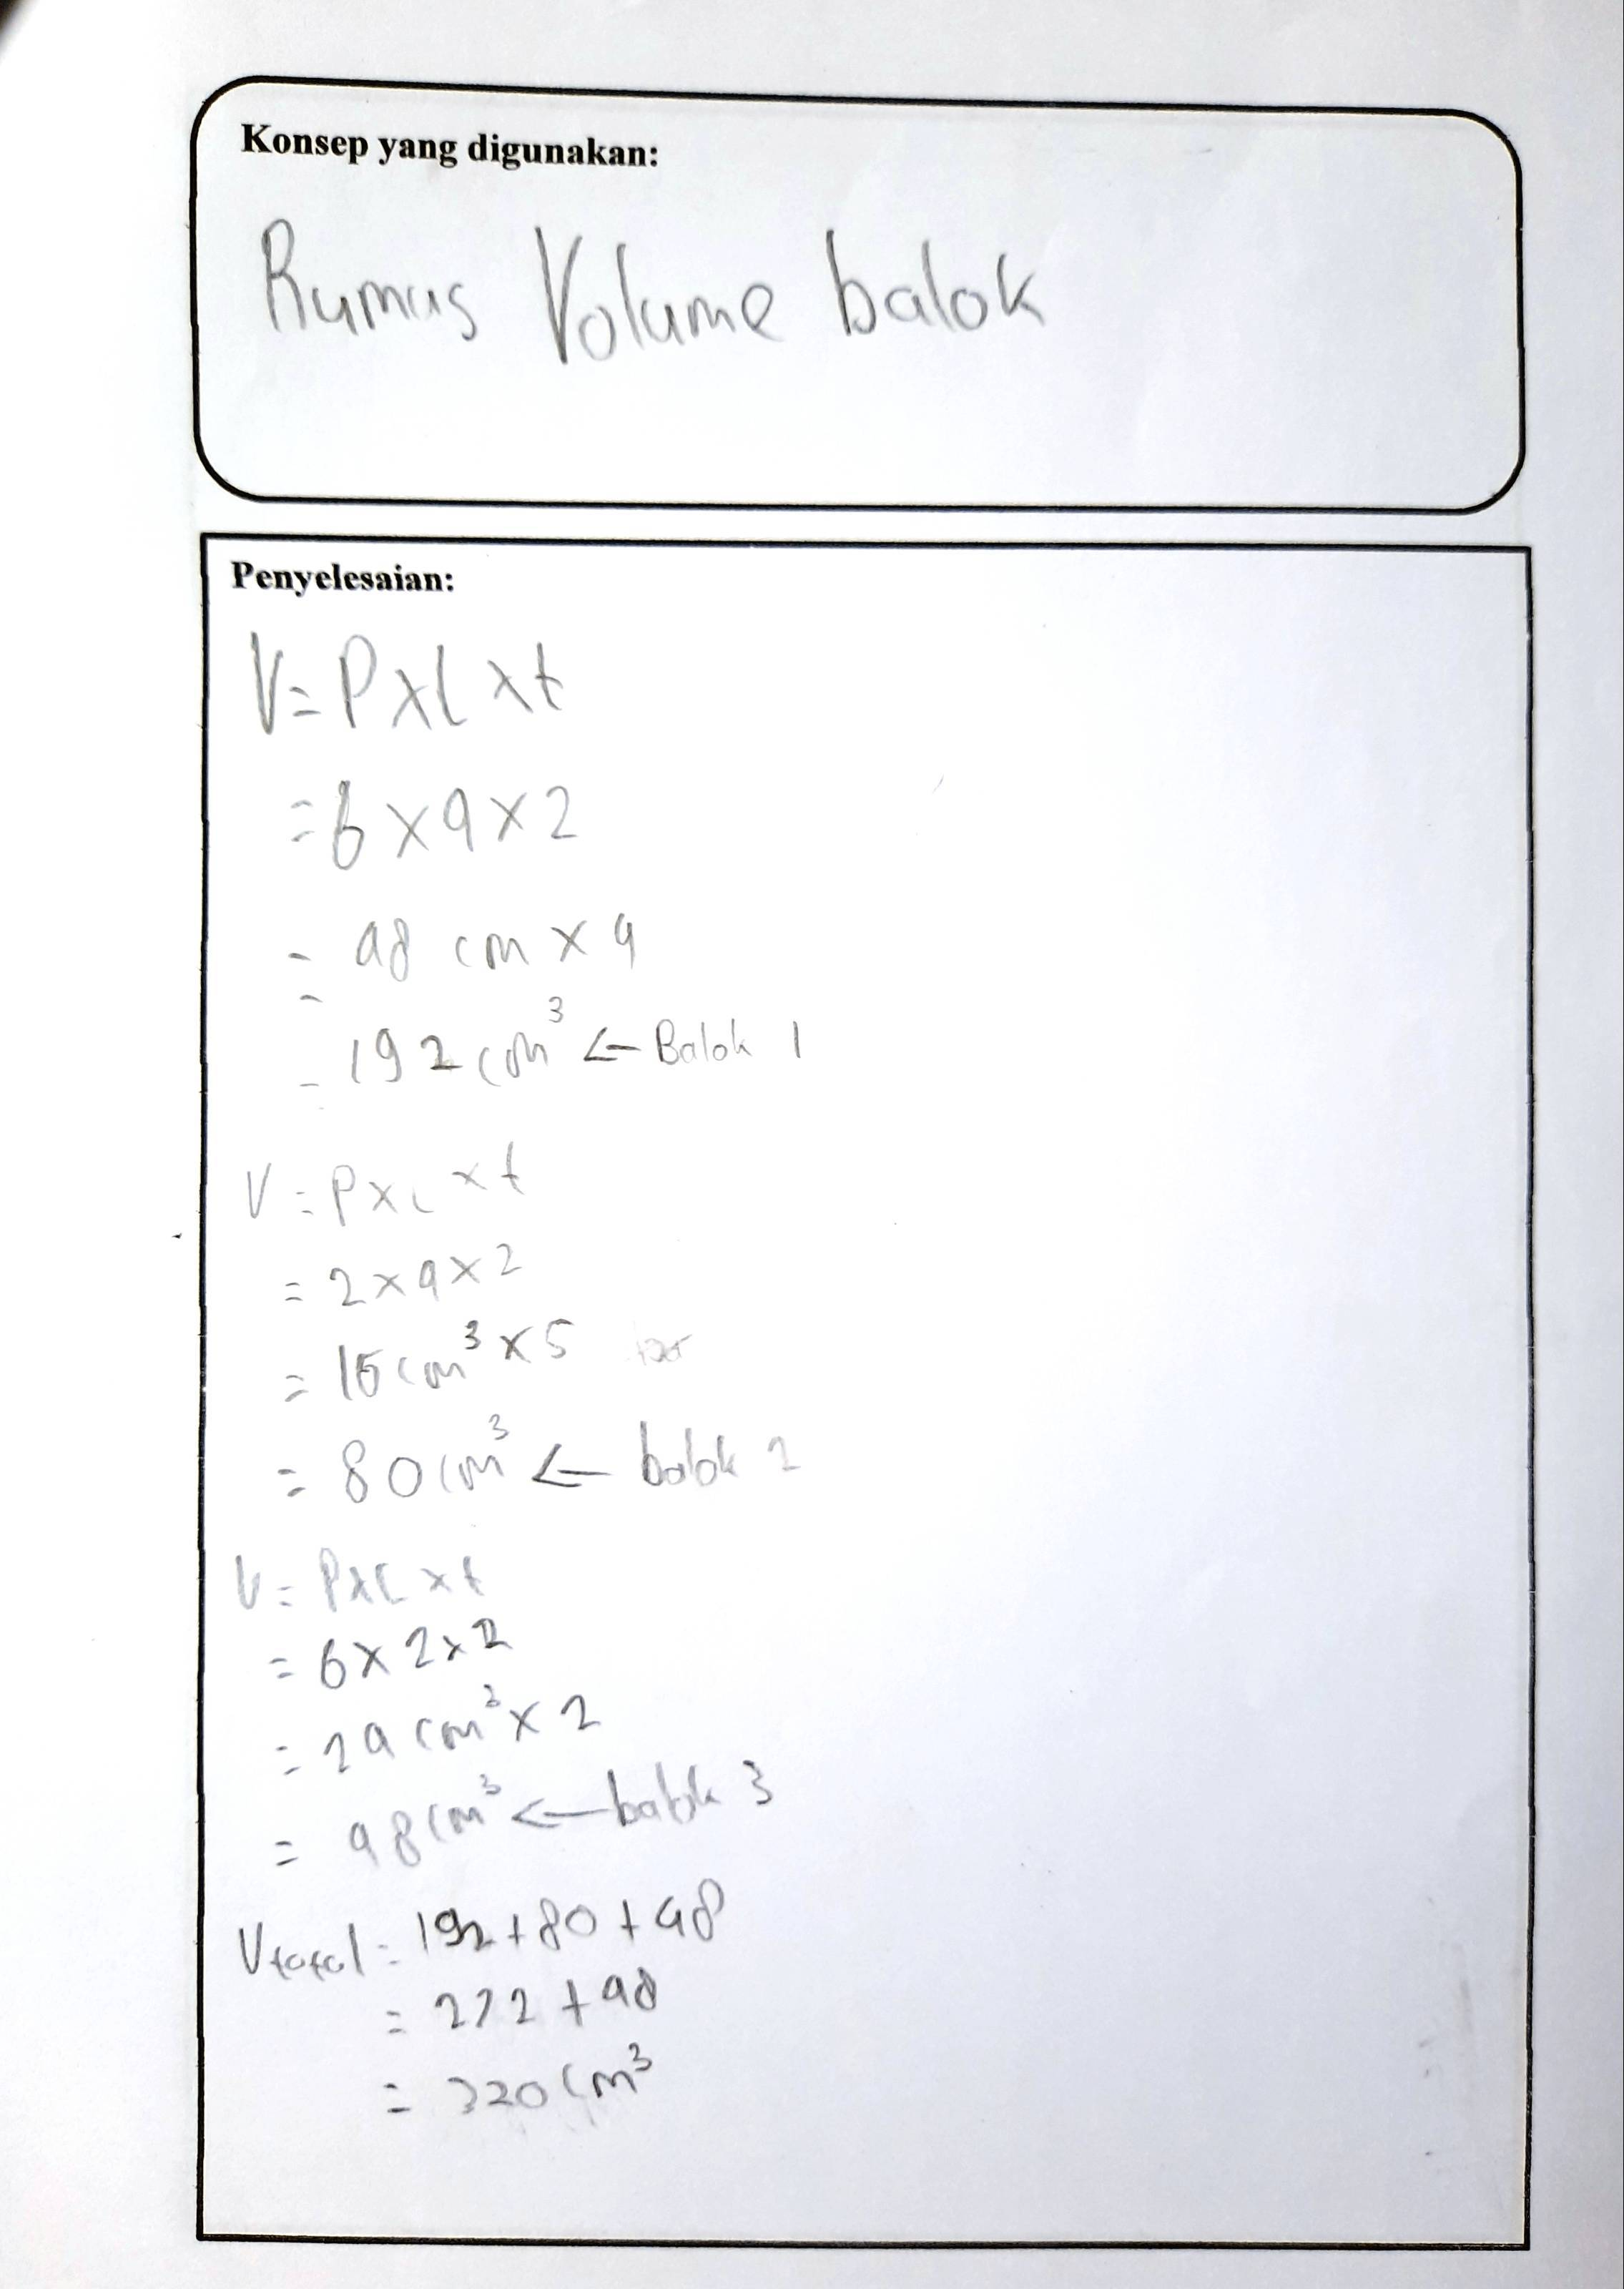 Konsep yang digunakan:
Rumus Volume balok
Penyelesaian:
V = P x l x t
= 6 x 4 x 2
= 48 cm x 4
=
= 192 cm³ ← Balok 1
V = P x l x t
= 2 x 4 x 2
= 16 cm³ x 5
= 80 cm³ ← balok 2
V = P x l x t
= 6 x 2 x 2
= 24 cm³ x 2
= 48 cm³ ← balok 3
V total = 192 + 80 + 48
= 272 + 48
= 320 cm³